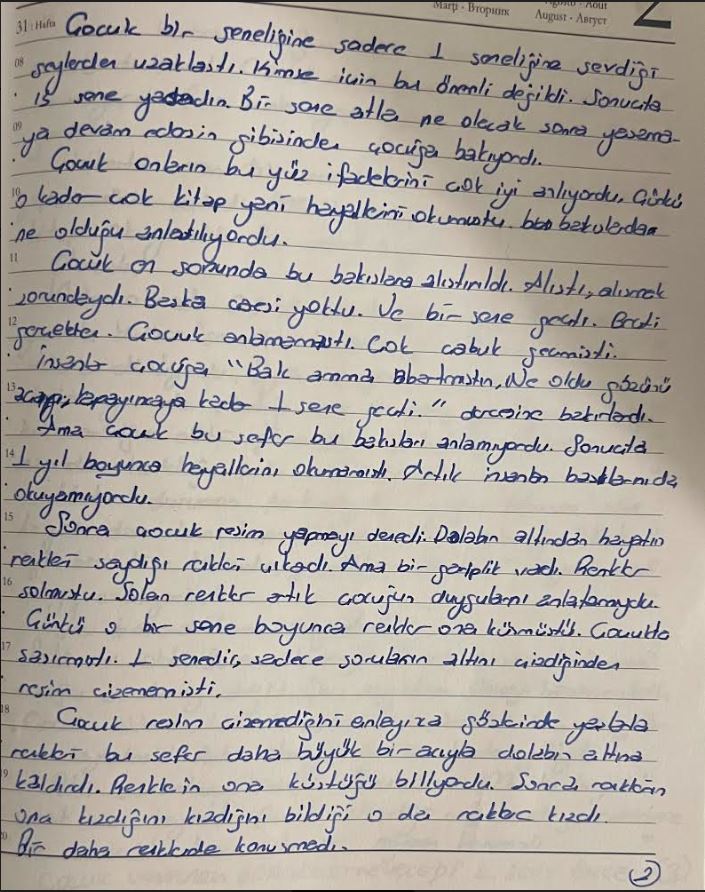 Març · Вторник
August · Август
2
31 : Hafta Çocuk bir seneliğine sadece 1 seneliğine sevdiği
08 şeylerden uzaklaştı. Kimse için bu önemli değildi. Sonuçta
15 sene yaşadın. Bir sene atla ne olacak sonra yaşama-
09 ya devam edersin gibisinden çocuğa bakıyordı.
Çocuk onların bu yüz ifadelerini çok iyi anlıyordu. Çünkü
10 o kadar çok kitap yani hayallerini okumuştu. bakışlardan
ne olduğu anlatılıyordu.
11 Çocuk en sonunda bu bakışlara alıştırıldı. Alıştı, alışmak
zorundaydı. Başka çaresi yoktu. Ve bir sene geçti. Geçti
12 gerçekten. Çocuk anlamamıştı. Çok çabuk geçmişti.
İnsanlar çocuğa "Bak amma abartmıştın, Ne oldu gözünü
13 açıp, kapayıncaya kadar 1 sene geçti." dercesine bakarlardı.
Ama çocuk bu sefer bu bakışları anlamıyordu. Sonuçta
14 1 yıl boyunca hayallerini okumamıştı. Artık insanları bakışlarınıda
okuyamıyordu.
15 Sonra çocuk resim yapmayı denedi. Dolabın altından hayatın
renkleri saydığı renkleri çıkardı. Ama bir gariplik vardı. Renkler
16 solmuştu. Solan renkler artık çocuğun duygularını anlatamıyordu.
Çünkü o bir sene boyunca renkler ona küsmüştü. Çocukta
17 şaşırmadı. 1 senedir, sadece soruların altını çizdiğinden
resim çizememişti.
18 Çocuk resim çizemediğini anlayınca gözlerinde yaşlarla
renkleri bu sefer daha büyük bir acıyla dolabın altına
19 kaldırdı. Renklerin ona küstüğü biliyordu. Sonra renklerin
ona kızdığını kızdığını bildiği o da renklere kızdı.
20 Bir daha renklerle konuşmadı.
2